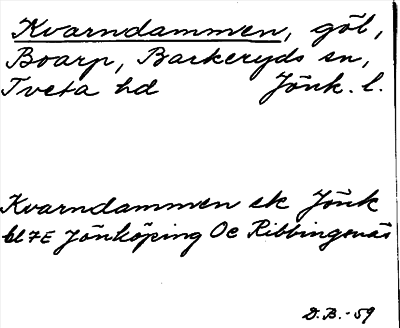 Kvarndammen, göl,
Boarp, Barkeryds sn,
Tveta hd Jönk. l.
Kvarndammen ek Jönk
bl 7E Jönköping Oc Ribbingsnäs
D.B.-59